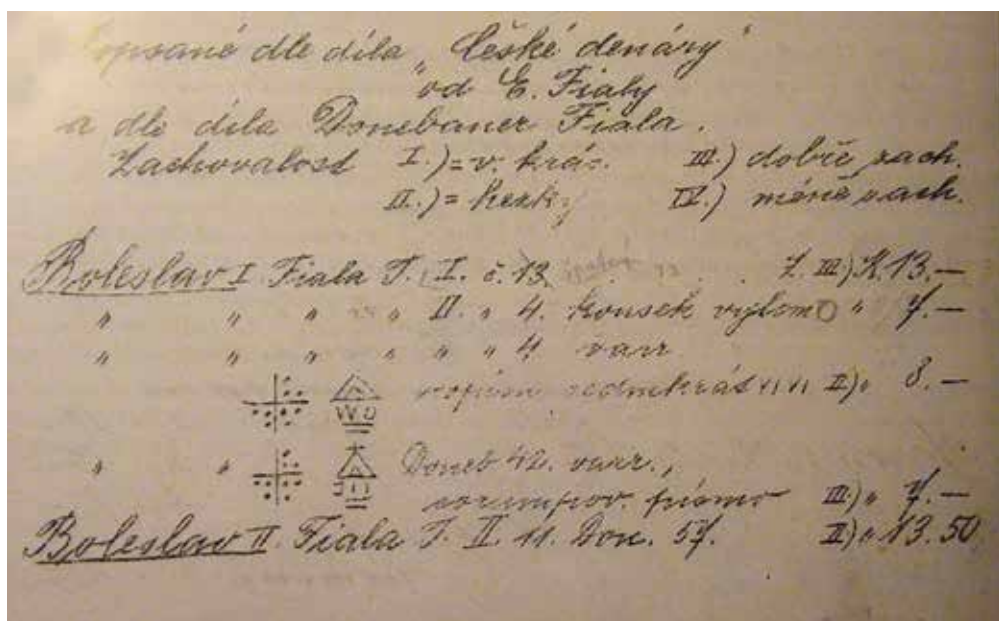 dle díla „České denáry"
od E. Fialy
a dle díla Donebauer Fiala.
Zachovalost I.)=v. krás. III.) dobře zach.
II.)= hezký IV.) méně zach.
Boleslav I. Fiala T. I. č. 13 Z. III) K 13.—
" " " " II. " 4. kousek vylom " 7.—
" " " " " " 4 varr
sedmkrát II) " 8.—
" " Doneb 42. varr.,
písmo III.) " 7.—
Boleslav II. Fiala T. II. 11. Don. 57. II) " 13.50